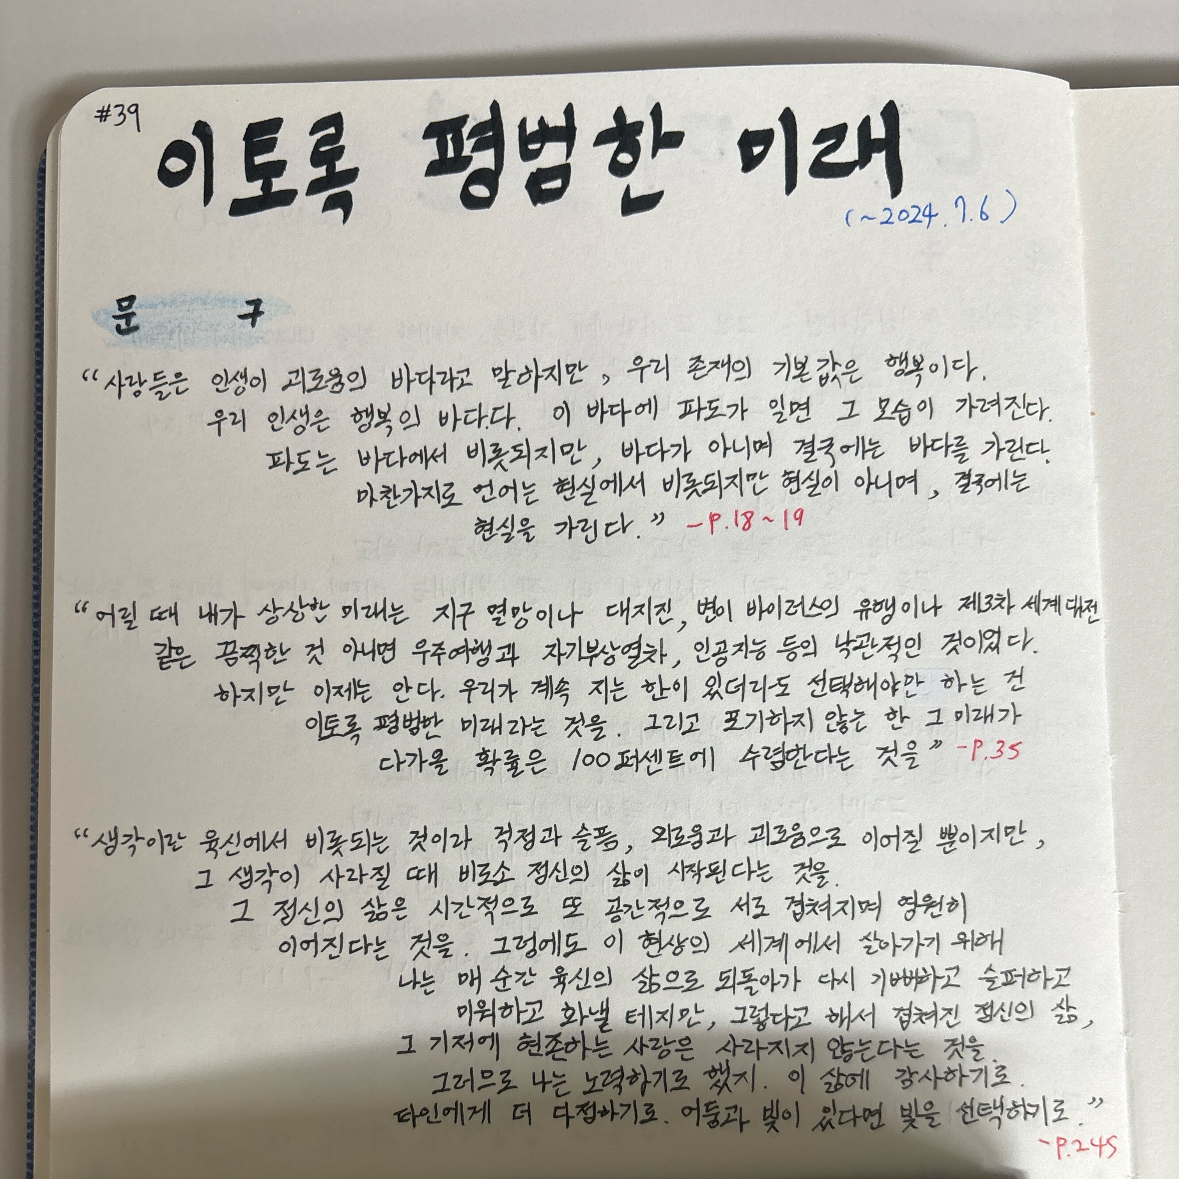 #39
이토록 평범한 미래
(~2024.7.6)
문 구
“사람들은 인생이 괴로움의 바다라고 말하지만, 우리 존재의 기본값은 행복이다.
우리 인생은 행복의 바다다. 이 바다에 파도가 일면 그 모습이 가려진다.
파도는 바다에서 비롯되지만, 바다가 아니며 결국에는 바다를 가린다.
마찬가지로 언어는 현실에서 비롯되지만 현실이 아니며, 결국에는
현실을 가린다.” -P.18~19
“어릴 때 내가 상상한 미래는 지구 멸망이나 대지진, 변이 바이러스의 유행이나 제3차 세계대전
같은 끔찍한 것 아니면 우주여행과 자기부상열차, 인공지능 등의 낙관적인 것이었다.
하지만 이제는 안다. 우리가 계속 지는 한이 있더라도 선택해야만 하는 건
이토록 평범한 미래라는 것을. 그리고 포기하지 않는 한 그 미래가
다가올 확률은 100퍼센트에 수렴한다는 것을” -P.35
“생각이란 육신에서 비롯되는 것이라 걱정과 슬픔, 외로움과 괴로움으로 이어질 뿐이지만,
그 생각이 사라질 때 비로소 정신의 삶이 시작된다는 것을.
그 정신의 삶은 시간적으로 또 공간적으로 서로 겹쳐지며 영원히
이어진다는 것을. 그럼에도 이 현상의 세계에서 살아가기 위해
나는 매 순간 육신의 삶으로 되돌아가 다시 기뻐하고 슬퍼하고
미워하고 화낼 테지만, 그렇다고 해서 겹쳐진 정신의 삶,
그 기저에 현존하는 사랑은 사라지지 않는다는 것을.
그러므로 나는 노력하기로 했지. 이 삶에 감사하기로.
타인에게 더 다정하기로. 어둠과 빛이 있다면 빛을 선택하기로.”
-P.245